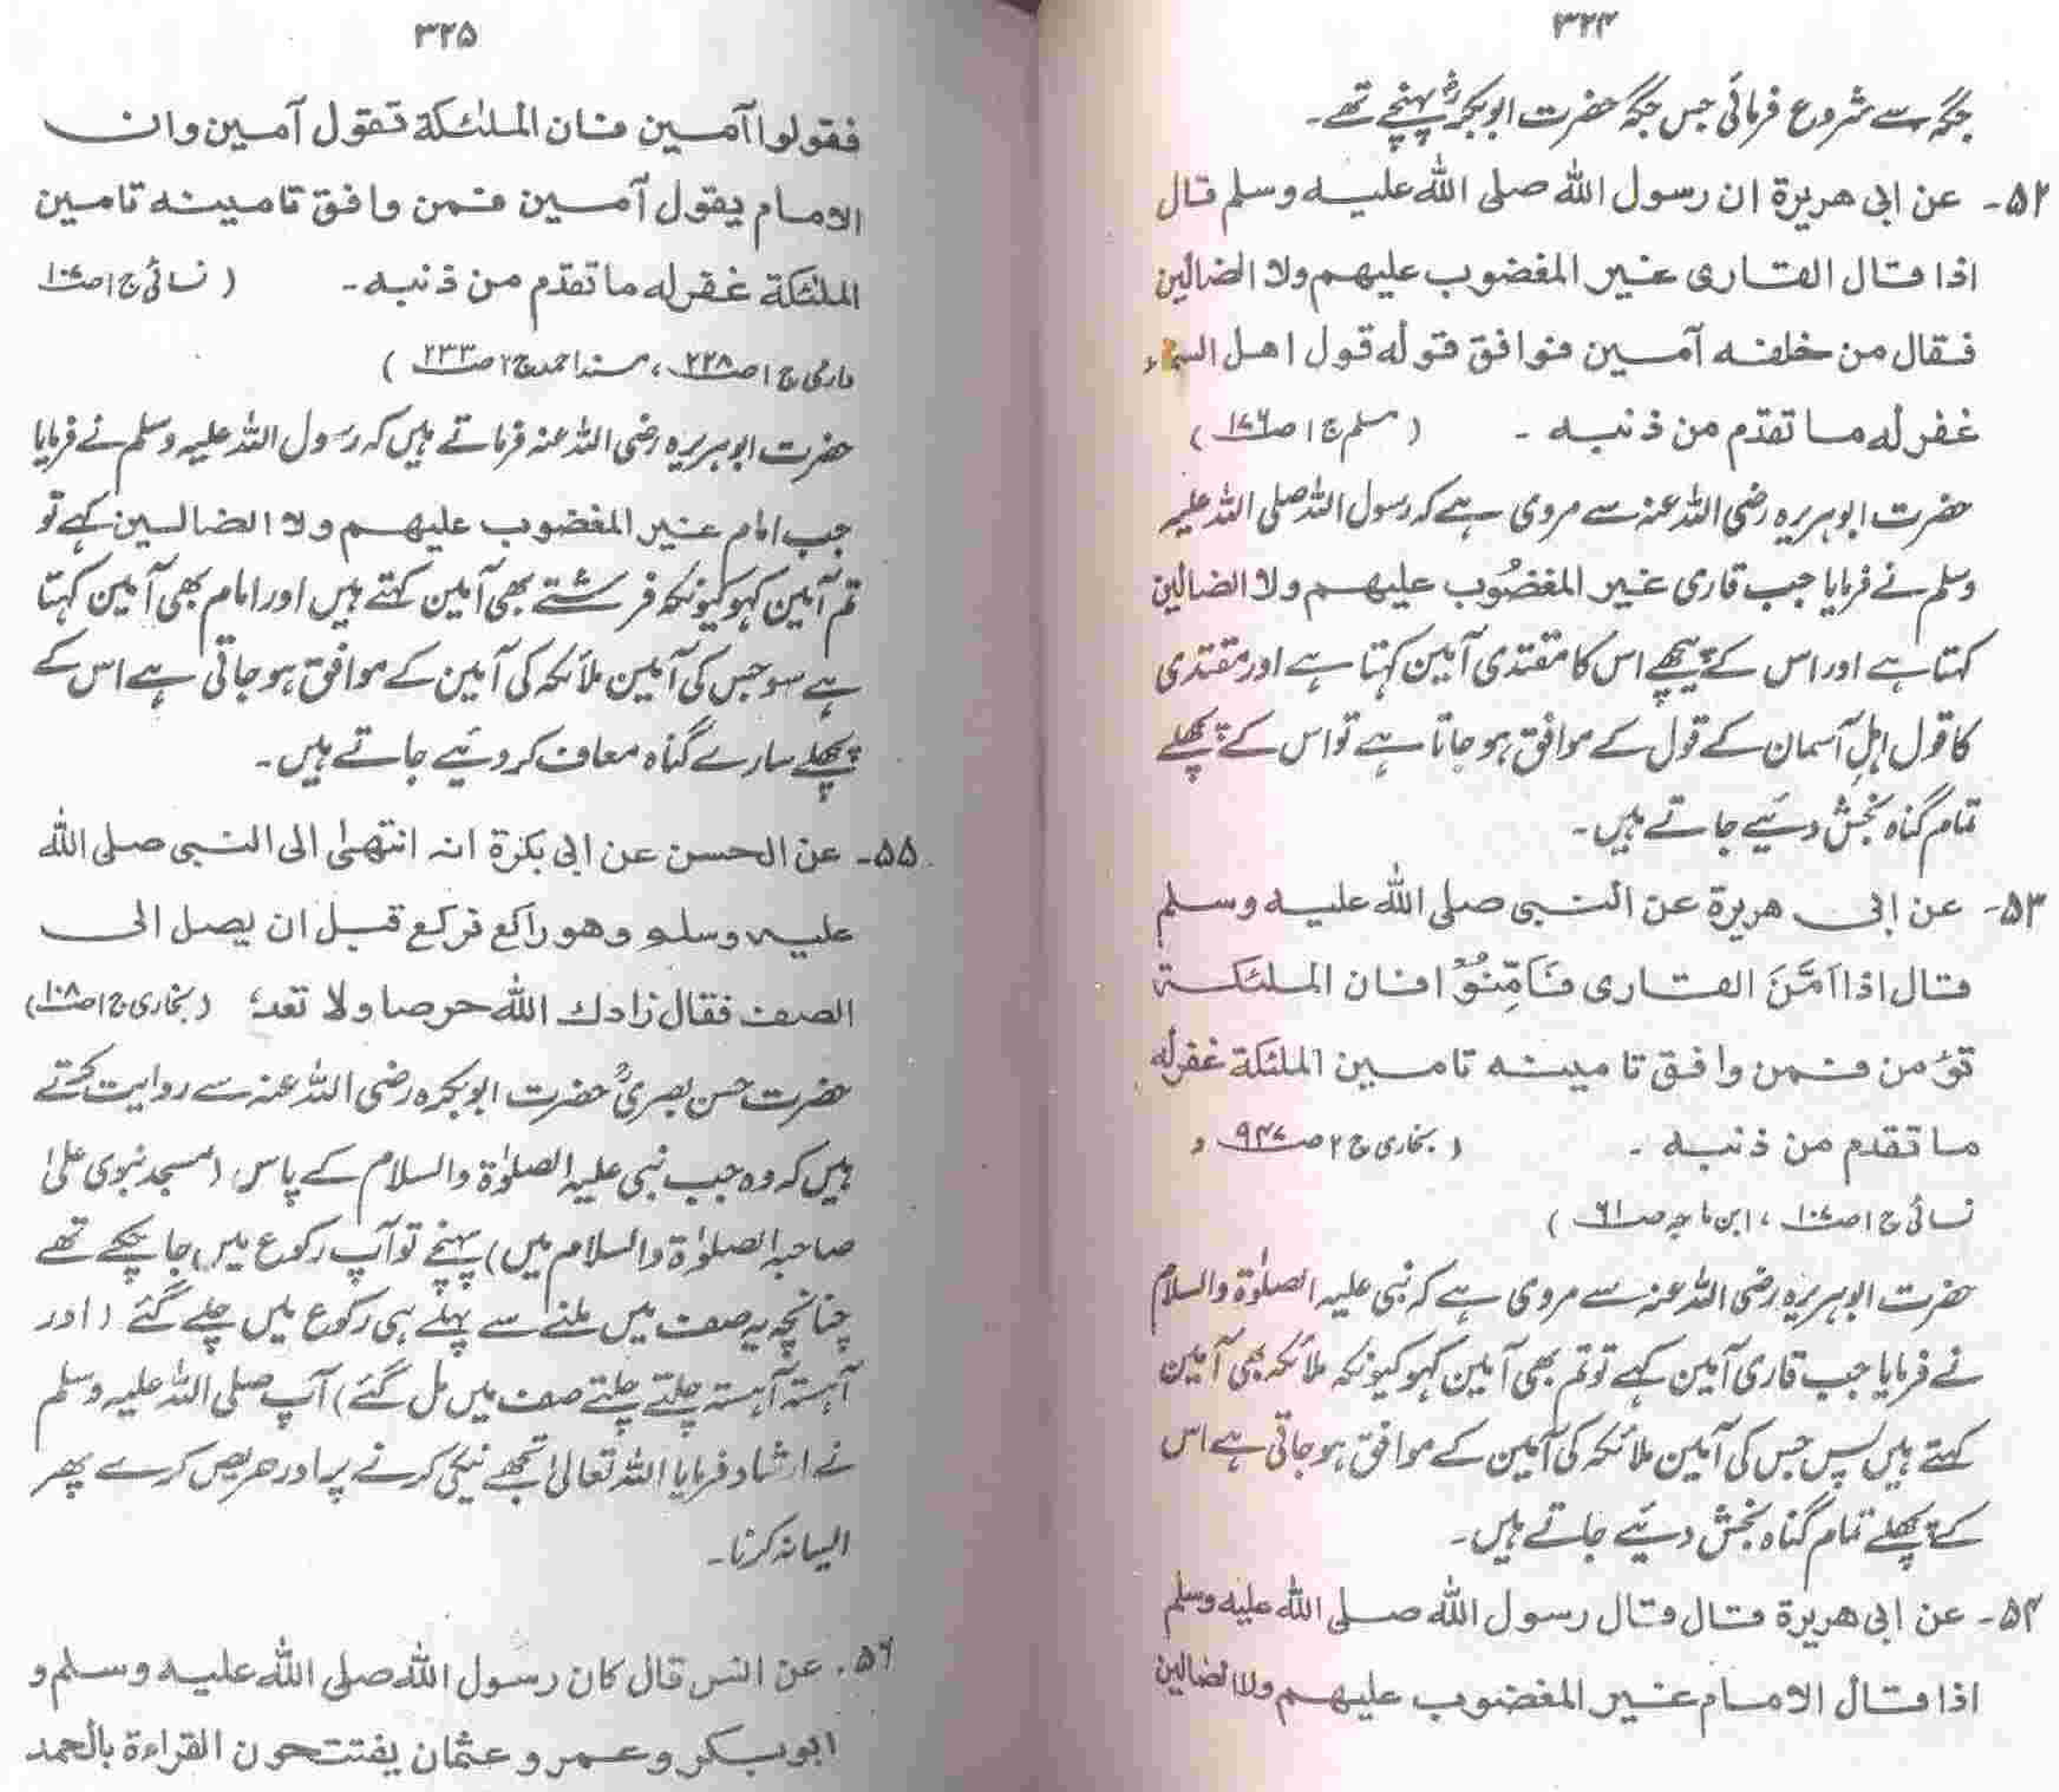 ۳۲۴
جگہ سے شروع فرمائی جس جگہ حضرت ابوبکرؓ پہنچے تھے۔
۵۲- عن ابی هریرة ان رسول الله صلی الله علیه وسلم قال
اذا قال القاری غیر المغضوب علیهم ولا الضالین
فقال من خلفه آمین فوافق قوله قول اهل السماء
غفر له ما تقدم من ذنبه - (مسلم ج ۱ ص ۱۷۶)
حضرت ابوہریرہ رضی اللہ عنہ سے مروی ہے کہ رسول اللہ صلی اللہ علیہ
وسلم نے فرمایا جب قاری غیر المغضُوب علیهم ولا الضالین
کہتا ہے اور اس کے پیچھے اس کا مقتدی آمین کہتا ہے اور مقتدی
کا قول اہلِ آسمان کے قول کے موافق ہو جاتا ہے تو اس کے پچھلے
تمام گناہ بخش دئیے جاتے ہیں۔
۵۳- عن ابی هریرة عن النبی صلی الله علیه وسلم
قال اذا اَمَّنَ القاری فَاَمِّنُوْا فان الملئکة
تؤمن فمن وافق تامینه تامین الملئکة غفر له
ما تقدم من ذنبه - (بخاری ج ۲ ص ۹۴۷،
نسائی ج ۱ ص ۱۰۷، ابن ماجہ ص ۶۱)
حضرت ابوہریرہ رضی اللہ عنہ سے مروی ہے کہ نبی علیہ الصلوٰة والسلام
نے فرمایا جب قاری آمین کہے تو تم بھی آمین کہو کیونکہ ملائکہ بھی آمین
کہتے ہیں پس جس کی آمین ملائکہ کی آمین کے موافق ہو جاتی ہے اس
کے پچھلے تمام گناہ بخش دئیے جاتے ہیں۔
۵۴- عن ابی هریرة قال قال رسول الله صلی الله علیه وسلم
اذا قال الامام غیر المغضوب علیهم ولا الضالین
۳۲۵
فقولوا آمین فان الملئکة تقول آمین وان
الامام یقول آمین فمن وافق تامینه تامین
الملئکة غفر له ما تقدم من ذنبه - (نسائی ج ۱ ص ۱۰۷
دارمی ج ۱ ص ۲۲۸، مسند احمد ج ۲ ص ۲۳۳)
حضرت ابوہریرہ رضی اللہ عنہ فرماتے ہیں کہ رسول اللہ علیہ وسلم نے فرمایا
جب امام غیر المغضوب علیهم ولا الضالین کہے تو
تم آمین کہو کیونکہ فرشتے بھی آمین کہتے ہیں اور امام بھی آمین کہتا
ہے سو جس کی آمین ملائکہ کی آمین کے موافق ہو جاتی ہے اس کے
پچھلے سارے گناہ معاف کر دئیے جاتے ہیں۔
۵۵- عن الحسن عن ابی بکرة انه انتهیٰ الی النبی صلی الله
علیه وسلم وهو راکع فرکع قبل ان یصل الی
الصف فقال زادك الله حرصا ولا تعد؛ (بخاری ج ۱ ص ۱۰۸)
حضرت حسن بصریؒ حضرت ابوبکرہ رضی اللہ عنہ سے روایت کرتے
ہیں کہ وہ جب نبی علیہ الصلوٰة والسلام کے پاس (مسجد نبوی علیٰ
صاحبہ الصلوٰة والسلام میں) پہنچے تو آپ رکوع میں جا چکے تھے
چنانچہ یہ صف میں ملنے سے پہلے ہی رکوع میں چلے گئے (اور
آہستہ آہستہ چلتے چلتے صف میں مل گئے) آپ صلی اللہ علیہ وسلم
نے ارشاد فرمایا اللہ تعالیٰ تجھے نیکی کرنے پر اور حریص کرے پھر
ایسا نہ کرنا۔
۵۶- عن انس قال کان رسول الله صلی الله علیه وسلم و
ابوبکر وعمر وعثمان یفتتحون القراءة بالحمد